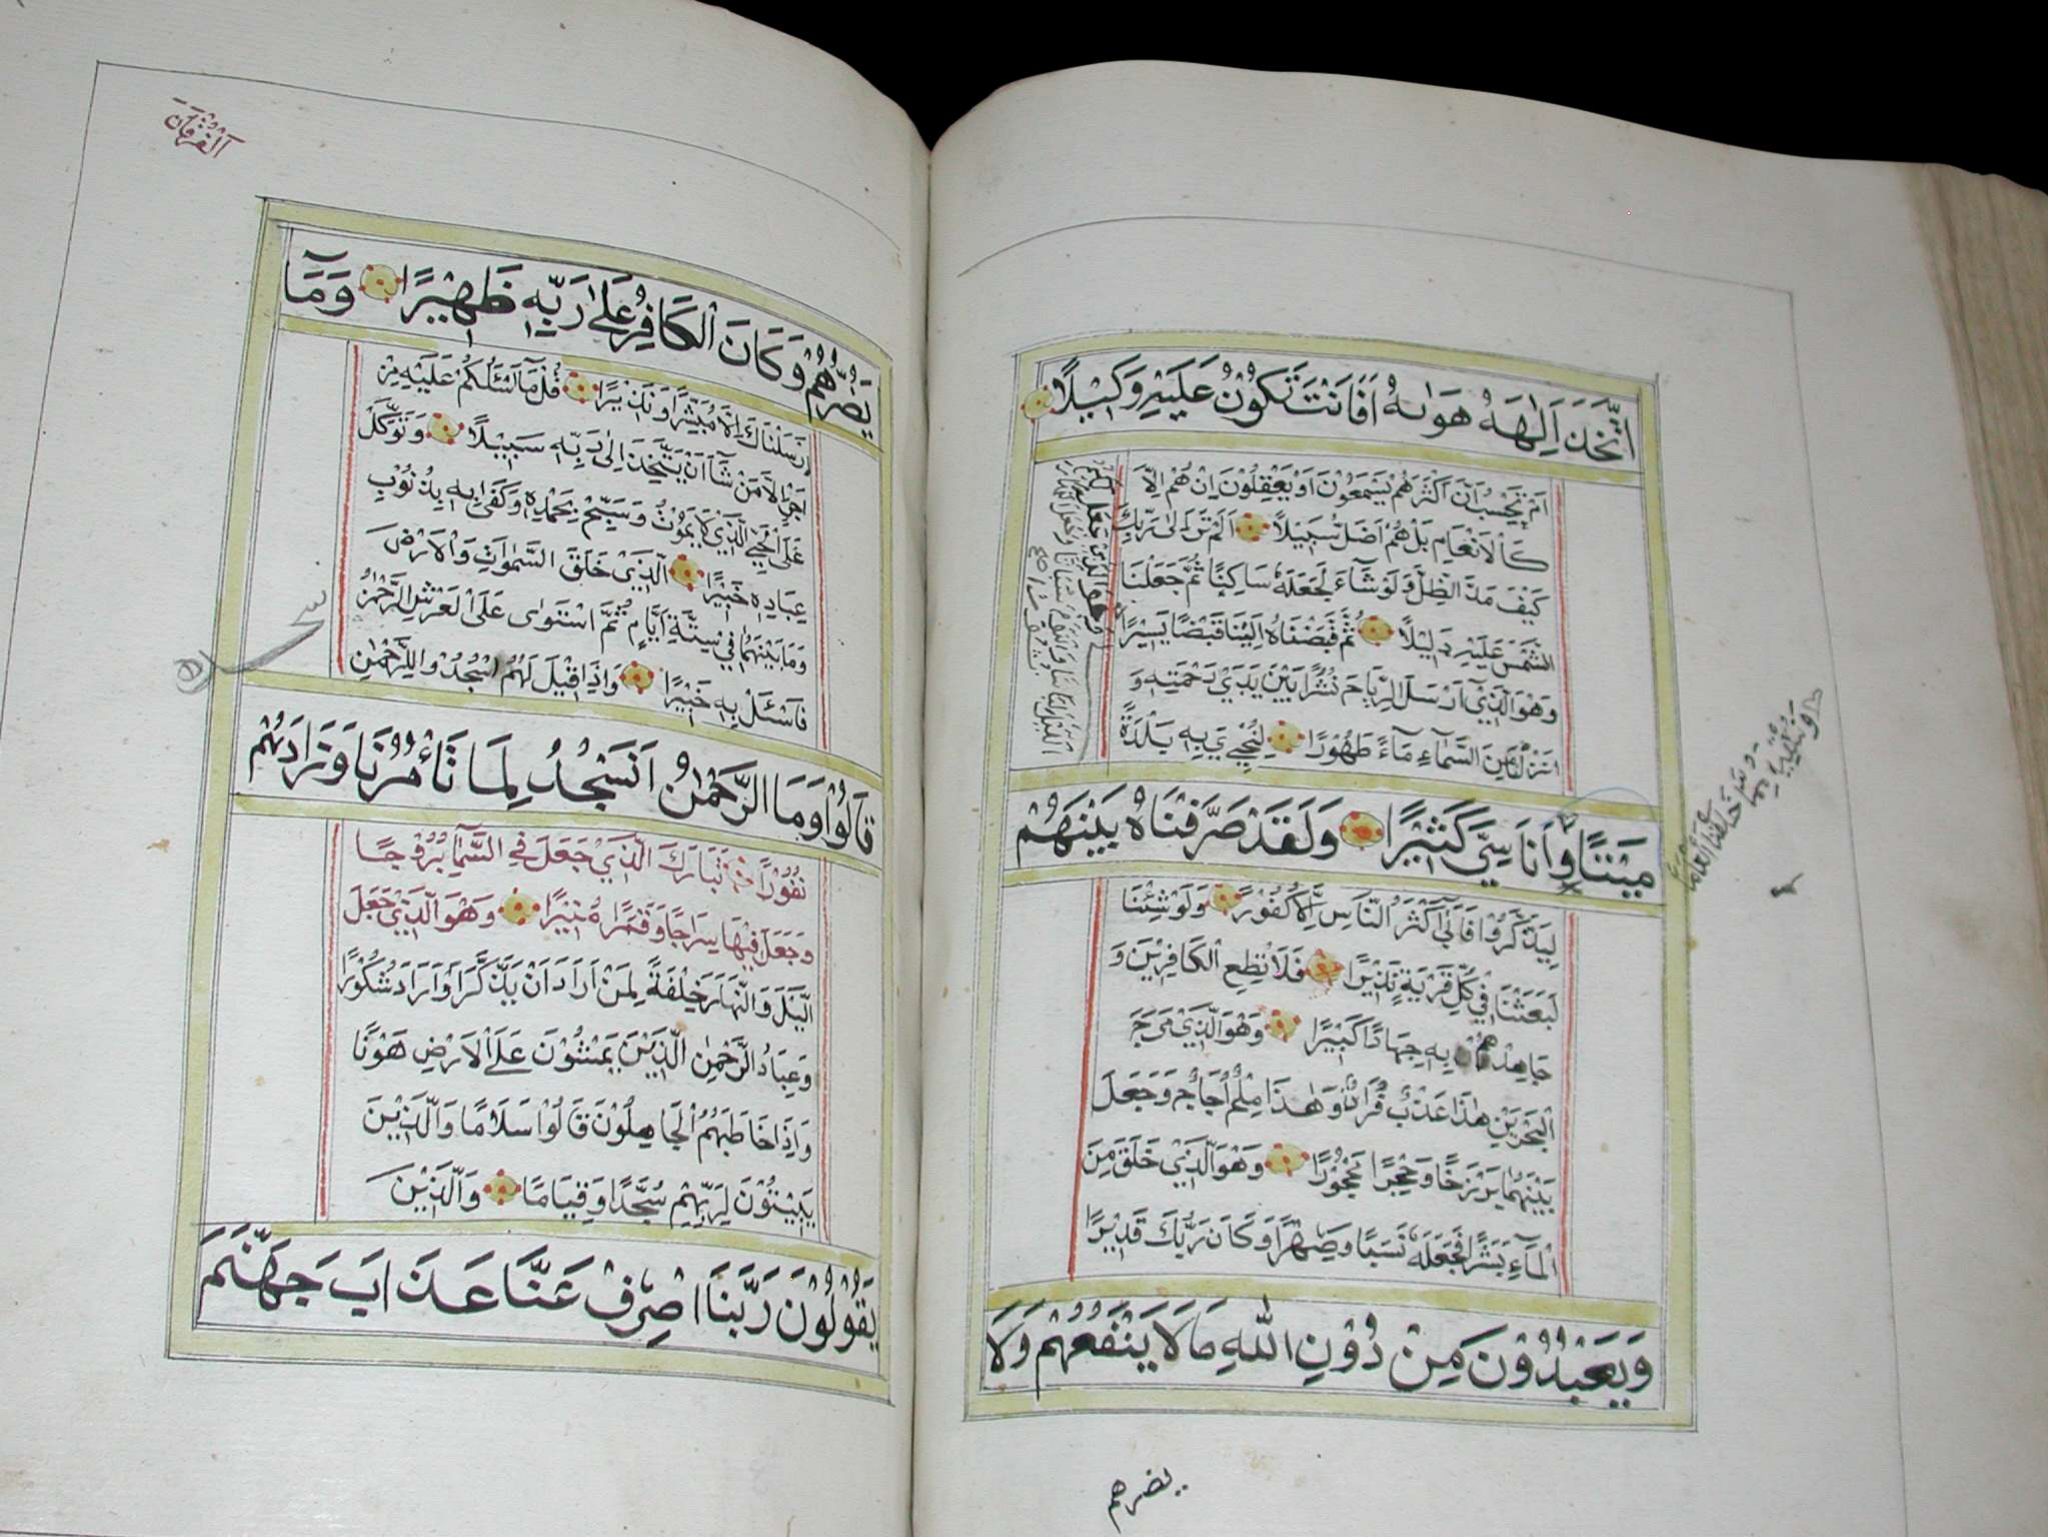 اتَّخَذَ اِلٰهَهُ هَوٰىهُ اَفَاَنْتَ تَكُوْنُ عَلَيْهِ وَكِيْلًا
اَمْ تَحْسَبُ اَنَّ اَكْثَرَهُمْ يَسْمَعُوْنَ اَوْ يَعْقِلُوْنَ اِنْ هُمْ اِلَّا
كَالْاَنْعَامِ بَلْ هُمْ اَضَلُّ سَبِيْلًا اَلَمْ تَرَ اِلٰى رَبِّكَ
كَيْفَ مَدَّ الظِّلَّ وَلَوْ شَآءَ لَجَعَلَهُ سَاكِنًا ثُمَّ جَعَلْنَا
الشَّمْسَ عَلَيْهِ دَلِيْلًا ثُمَّ قَبَضْنَاهُ اِلَيْنَا قَبْضًا يَسِيْرًا
وَهُوَ الَّذِيْ اَرْسَلَ الرِّيَاحَ نُشُرًا بَيْنَ يَدَيْ رَحْمَتِهِ وَ
اَنْزَلْنَا مِنَ السَّمَآءِ مَآءً طَهُوْرًا لِنُحْيِيَ بِهِ بَلْدَةً
وهو الذي جعل لكم
الليل لباسا والنوم سباتا وجعل النهار نشورا
مَيْتًا وَاَنَاسِيَّ كَثِيْرًا وَلَقَدْ صَرَّفْنَاهُ بَيْنَهُمْ
ونسقيه مما خلقنا انعاما
لِيَذَّكَّرُوْا فَاَبٰى اَكْثَرُ النَّاسِ اِلَّا كُفُوْرًا وَلَوْ شِئْنَا
لَبَعَثْنَا فِيْ كُلِّ قَرْيَةٍ نَذِيْرًا فَلَا تُطِعِ الْكَافِرِيْنَ وَ
جَاهِدْهُمْ بِهِ جِهَادًا كَبِيْرًا وَهُوَ الَّذِيْ مَرَجَ
الْبَحْرَيْنِ هٰذَا عَذْبٌ فُرَاتٌ وَهٰذَا مِلْحٌ اُجَاجٌ وَجَعَلَ
بَيْنَهُمَا بَرْزَخًا وَحِجْرًا مَحْجُوْرًا وَهُوَ الَّذِيْ خَلَقَ مِنَ
الْمَآءِ بَشَرًا فَجَعَلَهُ نَسَبًا وَصِهْرًا وَكَانَ رَبُّكَ قَدِيْرًا
وَيَعْبُدُوْنَ مِنْ دُوْنِ اللّٰهِ مَا لَا يَنْفَعُهُمْ وَلَا
يضرهم
اَلْفُرْقَانَ
يَضُرُّهُمْ وَكَانَ الْكَافِرُ عَلٰى رَبِّهِ ظَهِيْرًا وَمَآ
اَرْسَلْنَاكَ اِلَّا مُبَشِّرًا وَنَذِيْرًا قُلْ مَا اَسْئَلُكُمْ عَلَيْهِ مِنْ
اَجْرٍ اِلَّا مَنْ شَآءَ اَنْ يَتَّخِذَ اِلٰى رَبِّهِ سَبِيْلًا وَتَوَكَّلْ
عَلَى الْحَيِّ الَّذِيْ لَا يَمُوْتُ وَسَبِّحْ بِحَمْدِهِ وَكَفٰى بِهِ بِذُنُوْبِ
عِبَادِهِ خَبِيْرًا الَّذِيْ خَلَقَ السَّمٰوَاتِ وَالْاَرْضَ
وَمَا بَيْنَهُمَا فِيْ سِتَّةِ اَيَّامٍ ثُمَّ اسْتَوٰى عَلَى الْعَرْشِ الرَّحْمٰنُ
فَاسْئَلْ بِهِ خَبِيْرًا وَاِذَا قِيْلَ لَهُمُ اسْجُدُوْا لِلرَّحْمٰنِ
قَالُوْا وَمَا الرَّحْمٰنُ اَنَسْجُدُ لِمَا تَاْمُرُنَا وَزَادَهُمْ
نُفُوْرًا تَبَارَكَ الَّذِيْ جَعَلَ فِي السَّمَآءِ بُرُوْجًا
وَجَعَلَ فِيْهَا سِرَاجًا وَقَمَرًا مُنِيْرًا وَهُوَ الَّذِيْ جَعَلَ
الَّيْلَ وَالنَّهَارَ خِلْفَةً لِمَنْ اَرَادَ اَنْ يَذَّكَّرَ اَوْ اَرَادَ شُكُوْرًا
وَعِبَادُ الرَّحْمٰنِ الَّذِيْنَ يَمْشُوْنَ عَلَى الْاَرْضِ هَوْنًا
وَاِذَا خَاطَبَهُمُ الْجَاهِلُوْنَ قَالُوْا سَلَامًا وَالَّذِيْنَ
يَبِيْتُوْنَ لِرَبِّهِمْ سُجَّدًا وَقِيَامًا وَالَّذِيْنَ
يَقُوْلُوْنَ رَبَّنَا اصْرِفْ عَنَّا عَذَابَ جَهَنَّمَ